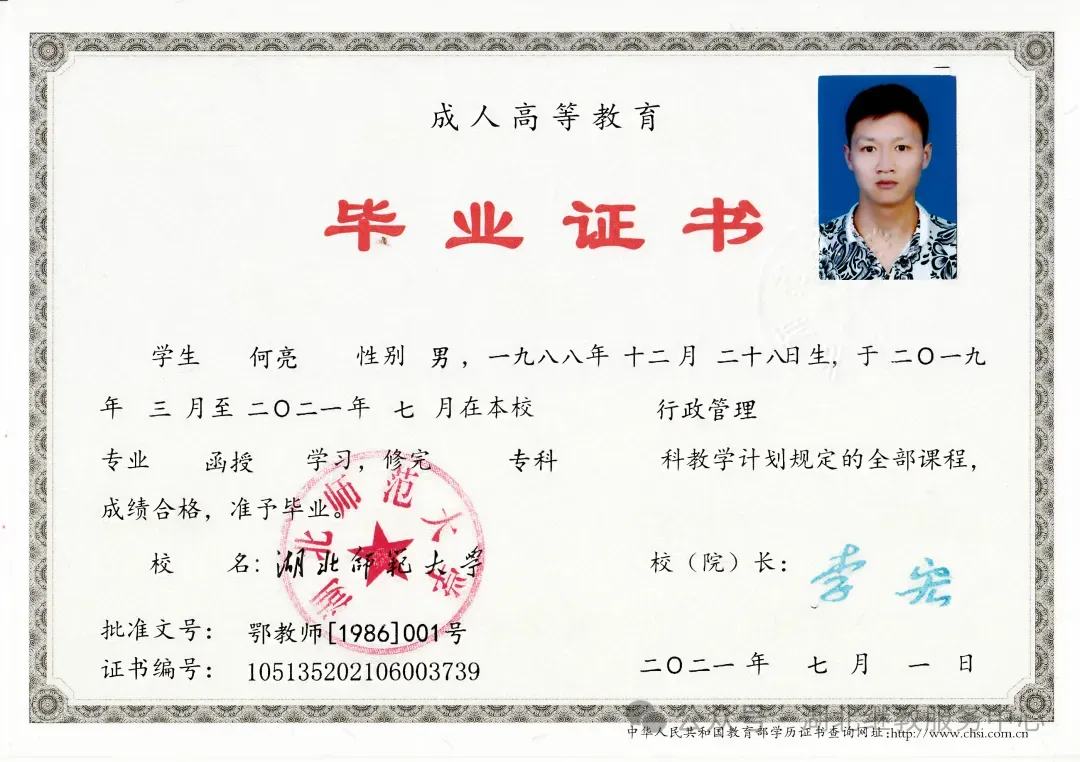 成人高等教育
毕业证书
学生 何亮 性别 男，一九八八年 十二月 二十八日生，于 二〇一九
年 三 月至 二〇二一年 七 月在本校 行政管理
专业 函授 学习，修完 专科 科教学计划规定的全部课程，
成绩合格，准予毕业。
湖北师范大学
校 名：湖北师范大学 校（院）长：李宏
批准文号：鄂教师[1986]001号
证书编号：105135202106003739 二〇二一年 七 月 一 日
公众号 湖北继教服务中心
中华人民共和国教育部学历证书查询网址:http://www.chsi.com.cn